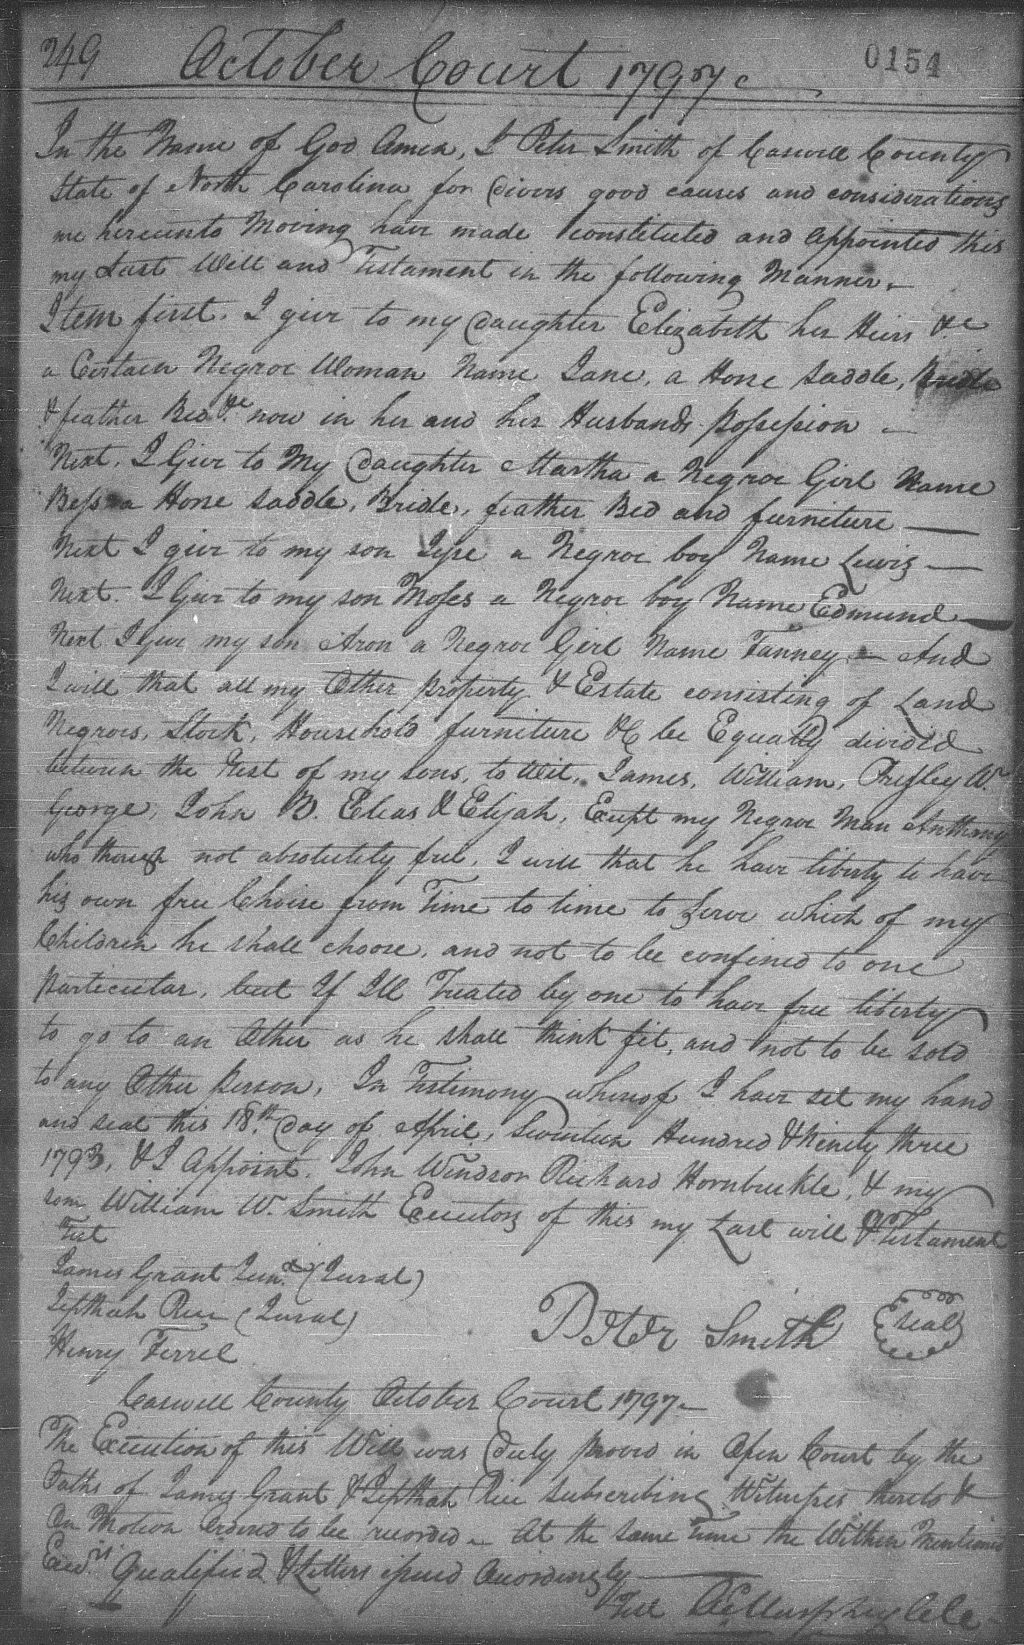 249 October Court 1797. 0154
In the Name of God Amen, I Peter Smith of Caswell County
State of North Carolina for divers good causes and considerations
me hereunto Moving have made constituted and appointed this
my Last Will and Testament in the following Manner.
Item first. I give to my daughter Elizabeth her Heirs &c
a Certain Negroe Woman Name Jane, a Horse Saddle, Bridle
& feather Bed &c now in her and her Husbands possession
Next. I Give to My daughter Martha a Negroe Girl Name
Bess a Horse saddle, Bridle, feather Bed and furneture
Next I give to my son a Negroe boy Name Lewis
Next. I Give to my son Moses a Negroe boy Name Edmund
Next I give my son Aron a Negroe Girl Name Fanney And
I will that all my Other property & Estate consisting of Land
Negroes, Stock, Household furneture &C be Equally divided
between the Rest of my sons, to Wit, James, William, Presley W.
George, John D. Elias & Elijah, Exept my Negroe Man Anthony
who though not absolutely free, I will that he have liberty to have
his own free Choise from Time to time to Serve which of my
Children he shall choose, and not to be confined to one
particular, but If Ill Treated by one to have free liberty
to go to an Other as he shall think fit, and not to be sold
to any Other person. In Testimony whereof I have set my hand
and seal this 18th day of April, Seventeen Hundred & Ninety three
1793, & I Appoint, John Windsor Richard Hornbuckle, & my
son William W. Smith Executors of this my Last will & Testament
Test
James Grant Junr (Jurat)
Jepthah Rice (Jurat)
Henry Ferrel
Peter Smith Seal
Caswell County October Court 1797
The Execution of this Will was duly proved in Open Court by the
Oaths of James Grant & Jepthah Rice subscribing Witnesses thereto &
On Motion Ordered to be recorded At the same Time the Within Mentioned
Exers Qualified & Letters issued Accordingly
Test AE Murphey CC